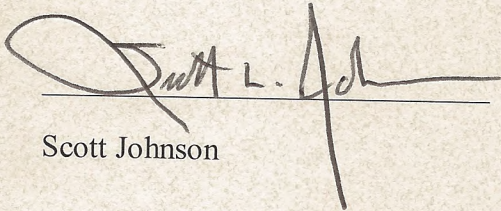 Scott L. Joh
Scott Johnson